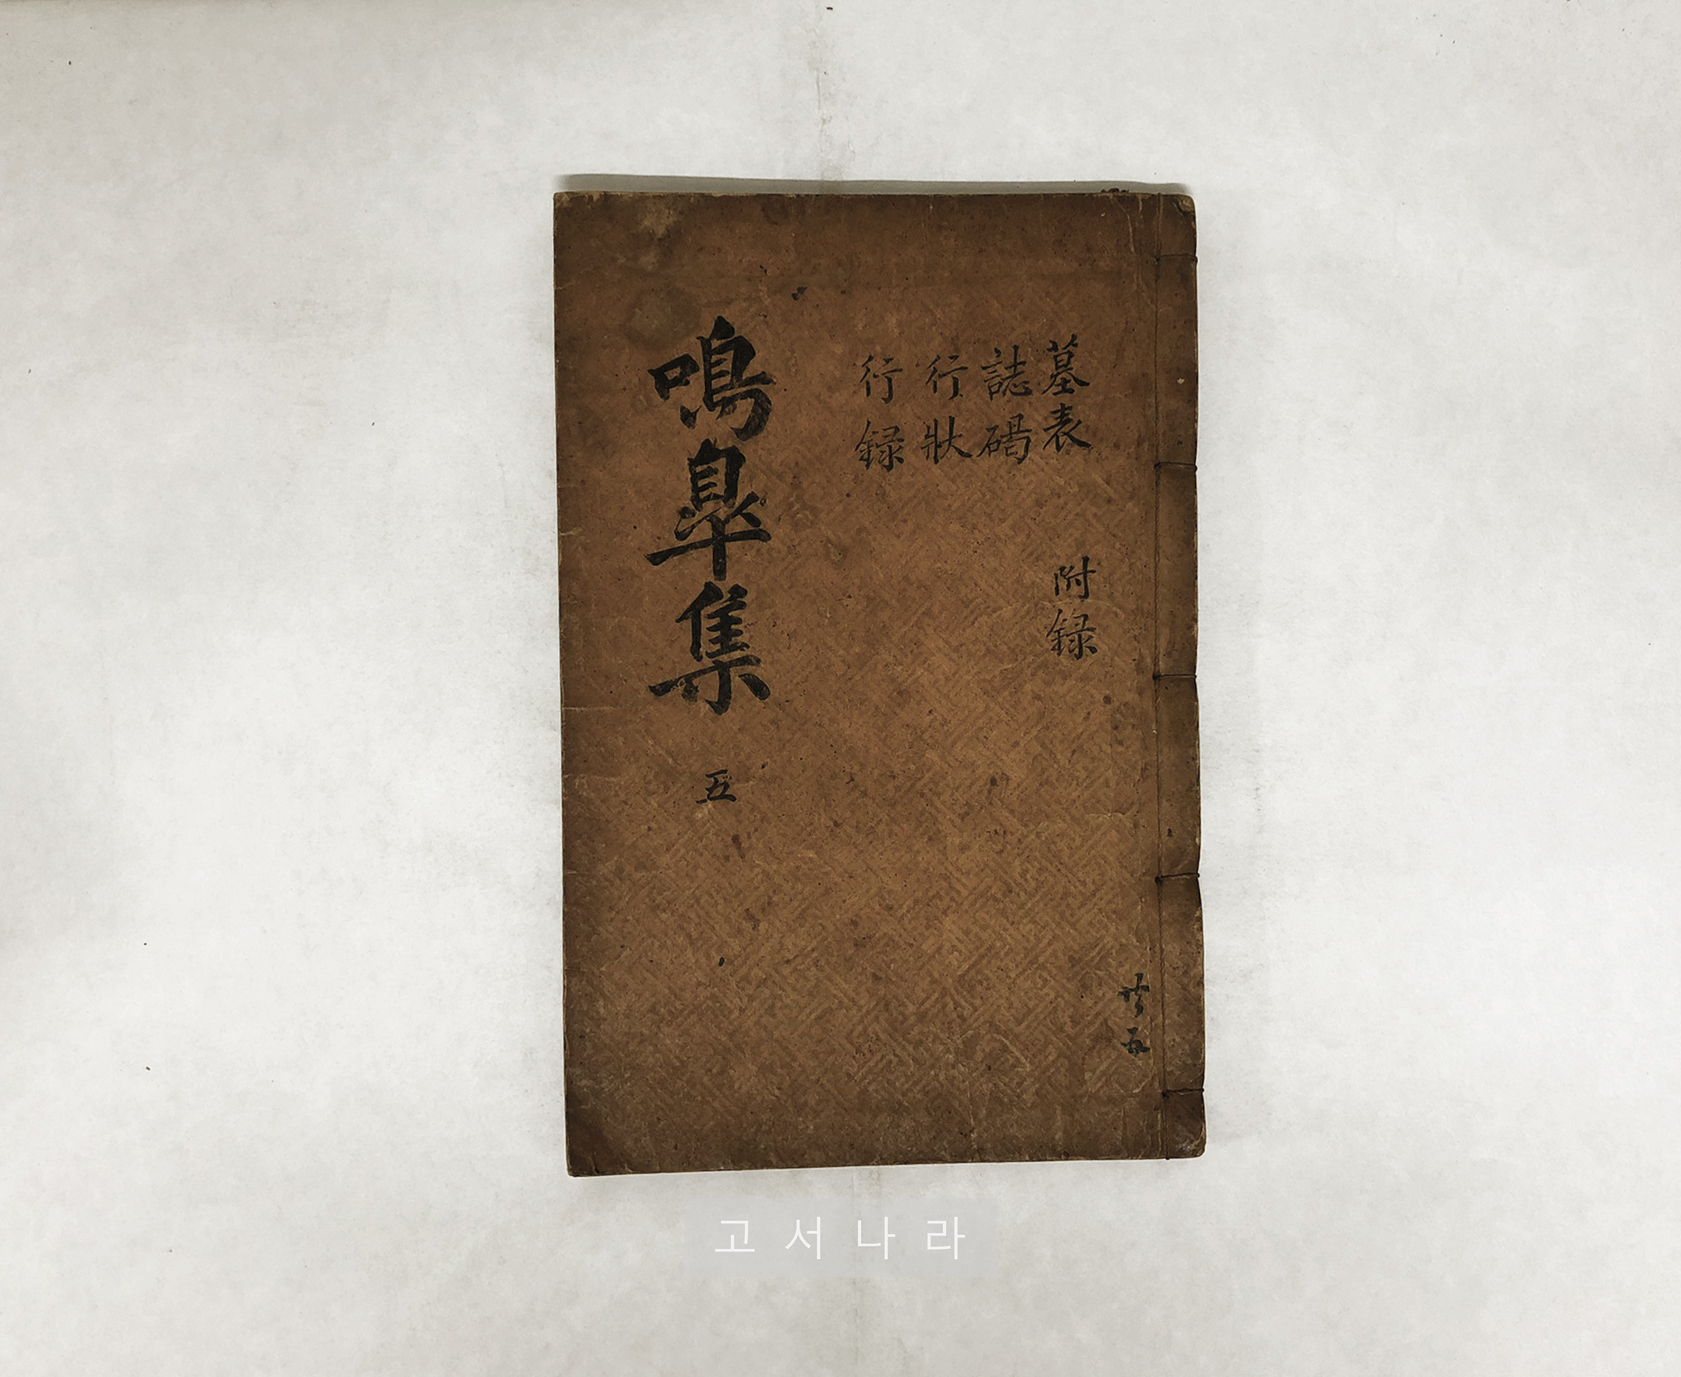 墓表 附錄
誌碣
行狀
行錄
鳴皐集 五
共五
고서나라